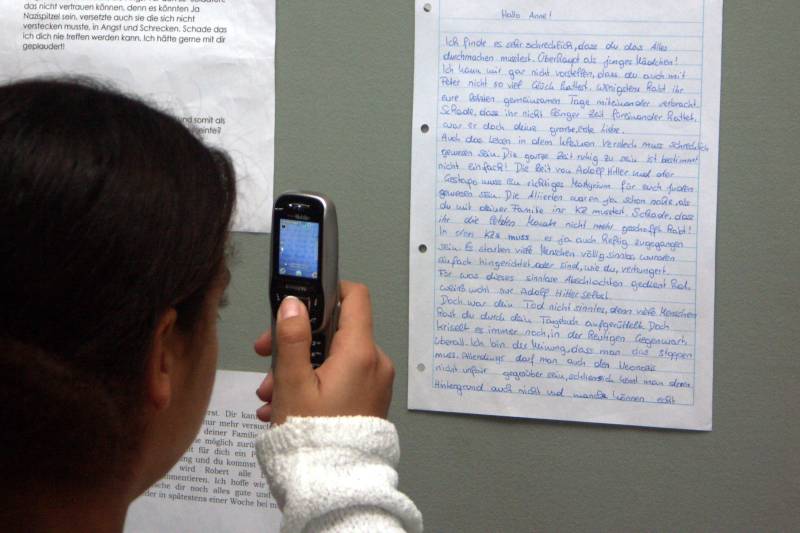 das nicht vertrauen können, denn es könnten Ja
Nazispitzel sein, versetzte auch sie die sich nicht
verstecken musste, in Angst und Schrecken. Schade das
ich dich nie treffen werden kann. Ich hätte gerne mit dir
geplaudert!
und somit als
einte?
Hallo Anne!
Ich finde es sehr schrecklich, dass du das Alles
durchmachen musstest. Überhaupt als junges Mädchen!
Ich kann mir gar nicht vorstellen, dass du auch mit
Peter nicht so viel Glück hattest. Wenigstens habt ihr
eure letzten gemeinsamen Tage miteinander verbracht.
Schade, dass ihr nicht länger Zeit füreinander hattet,
war er doch deine große, erste Liebe.
Auch das Leben in dem kleinen Versteck muss schrecklich
gewesen sein. Die ganze Zeit ruhig zu sein ist bestimmt
nicht einfach! Die Zeit von Adolf Hitler und der
Gestapo muss ein richtiges Martyrium für euch Juden
gewesen sein. Die Alliierten waren ja schon nahe, als
du mit deiner Familie ins KZ musstest. Schade, dass
ihr die letzten Monate nicht mehr geschafft habt!
In den KZs muss es ja auch heftig zugegangen
sein. Es starben viele Menschen völlig sinnlos, wurden
einfach hingerichtet oder sind, wie du, verhungert.
Für was dieses sinnlose Abschlachten gedient hat,
weiß wohl nur Adolf Hitler selbst.
Doch war dein Tod nicht sinnlos, denn viele Menschen
hast du durch dein Tagebuch aufgerüttelt. Doch
kriselt es immer noch, in der heutigen Gegenwart
überall. Ich bin der Meinung, dass man das stoppen
muss. Allerdings darf man auch den Neonazis
nicht unfair gegenüber sein, schliesslich kennt man deren
Hintergrund auch nicht und manche können echt
rst. Dir kan
nur mehr versuch
deiner Familie
ie möglich zurü
t für dich ein
ng und du kommst
wird Robert alle
mentieren. Ich hoffe wi
sche dir noch alles gute und
der in spätestens einer Woche bei m